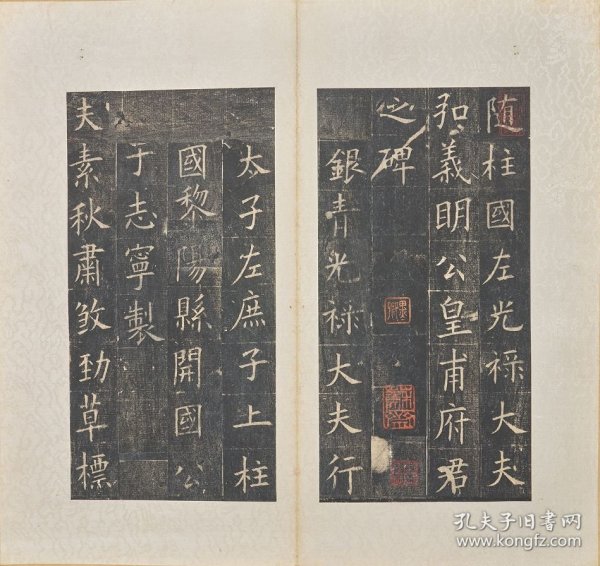 随柱國左光祿大夫
弘義明公皇甫府君
之碑
銀青光祿大夫行
太子左庶子上柱
國黎陽縣開國公
于志寧製
夫素秋肅煞勁草標
孔夫子旧书网
www.kongfz.com